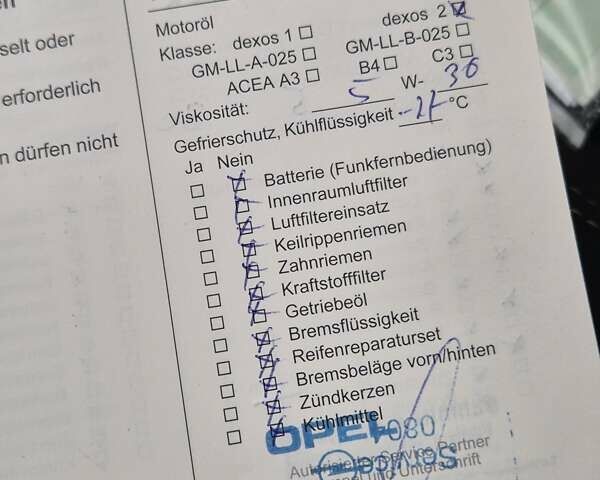 selt oder
erforderlich
n dürfen nicht
Motoröl
Klasse: dexos 1 ☐ dexos 2 ☒
GM-LL-A-025 ☐ GM-LL-B-025 ☐
ACEA A3 ☐ B4 ☐ C3 ☐
Viskosität: 5 W- 30
Gefrierschutz, Kühlflüssigkeit °C
Ja Nein
☐ ☒ Batterie (Funkfernbedienung)
☐ ☒ Innenraumluftfilter
☐ ☒ Luftfiltereinsatz
☐ ☒ Keilrippenriemen
☐ ☒ Zahnriemen
☐ ☒ Kraftstofffilter
☐ ☒ Getriebeöl
☐ ☒ Bremsflüssigkeit
☐ ☒ Reifenreparaturset
☐ ☒ Bremsbeläge vorn/hinten
☐ ☒ Zündkerzen
☐ ☒ Kühlmittel
OPEL
Autorisierter Service Partner
Service
und Unterschrift